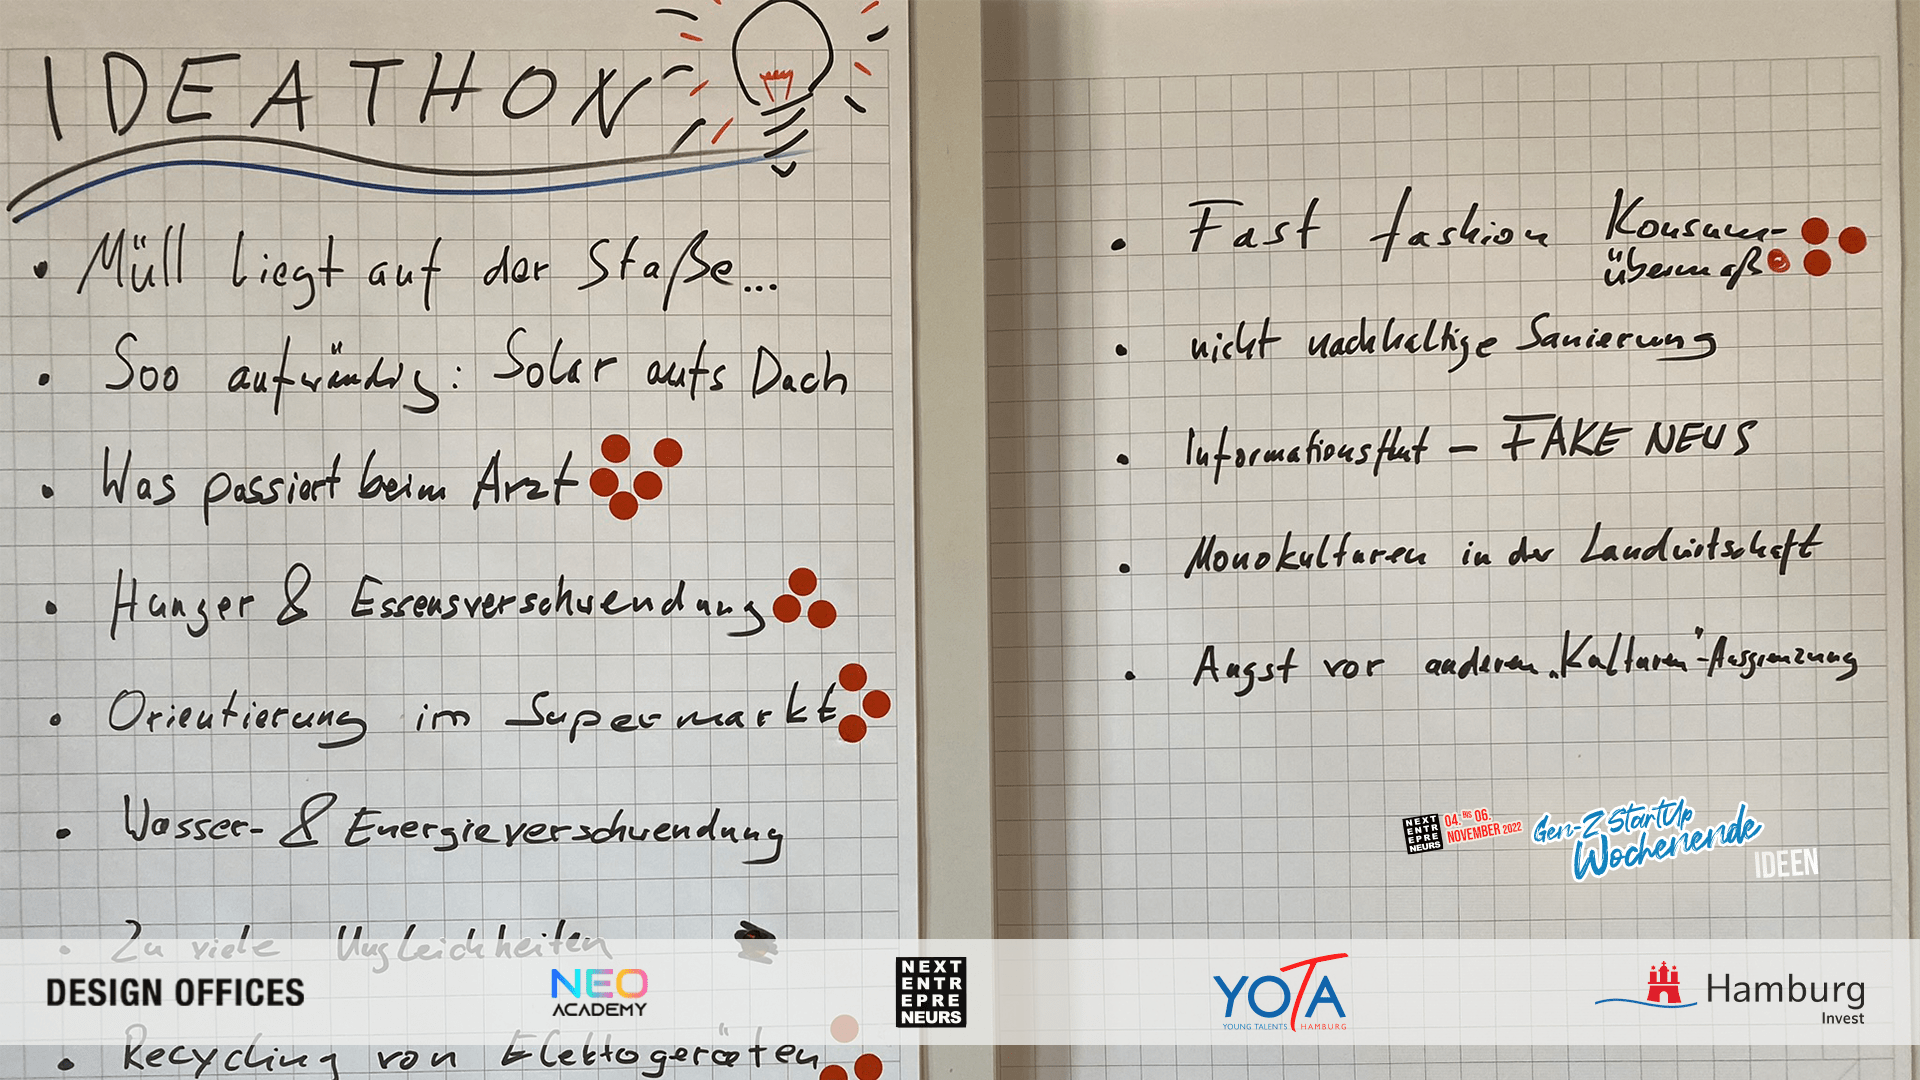 IDEATHON
• Müll liegt auf der Staße...
• Soo aufwändig: Solar aufs Dach
• Was passiert beim Arzt
• Hunger & Essensverschwendung
• Orientierung im Supermarkt
• Wasser- & Energieverschwendung
• Zu viele Ungleichheiten
• Recycling von Elektogeräten
• Fast fashion Konsum-
übermaß
• nicht nachhaltige Sanierung
• Informationsflut – FAKE NEWS
• Monokulturen in der Landwirtschaft
• Angst vor anderen „Kulturen"-Ausgrenzung
NEXT
ENTR
EPRE
NEURS
04. BIS 06.
NOVEMBER 2022
Gen-Z StartUp
Wochenende
IDEEN
DESIGN OFFICES
NEO
ACADEMY
NEXT
ENTR
EPRE
NEURS
YOTA
YOUNG TALENTS HAMBURG
Hamburg
Invest